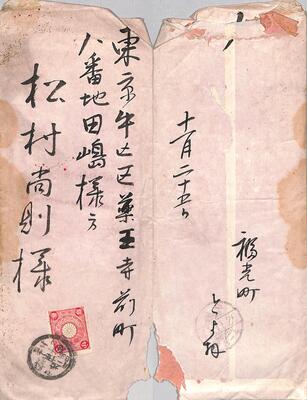 東京牛込区薬王寺前町
八番地田嶋様方
松村尚則様
十一月二十五日
福光町